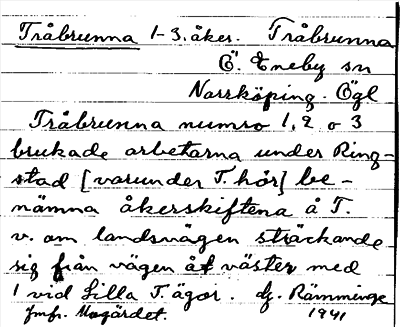 Tråbrunna 1-3. åker. Tråbrunna
Ö. Eneby sn
Norrköping. Ögl
Tråbrunna numro 1, 2 o 3
brukade arbetarna under Ring-
stad [varunder T. hör] be-
nämna åkerskiftena å T.
v. om landsvägen sträckande
sig från vägen åt väster med
1 vid Lilla T. ägor. Rämminge
jmfr. Mogärdet. 1941